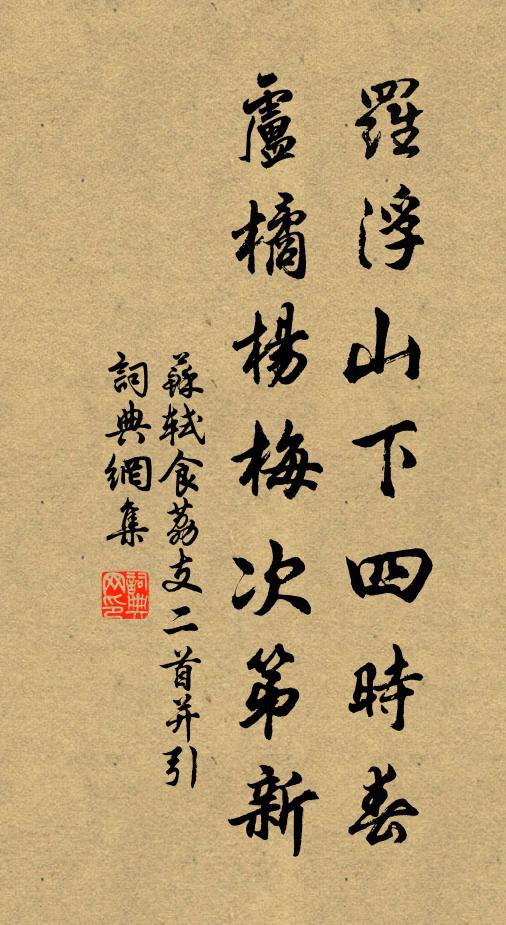 羅浮山下四時春
盧橘楊梅次第新
蘇軾食荔支二首并引
詞典網集
詞典网印